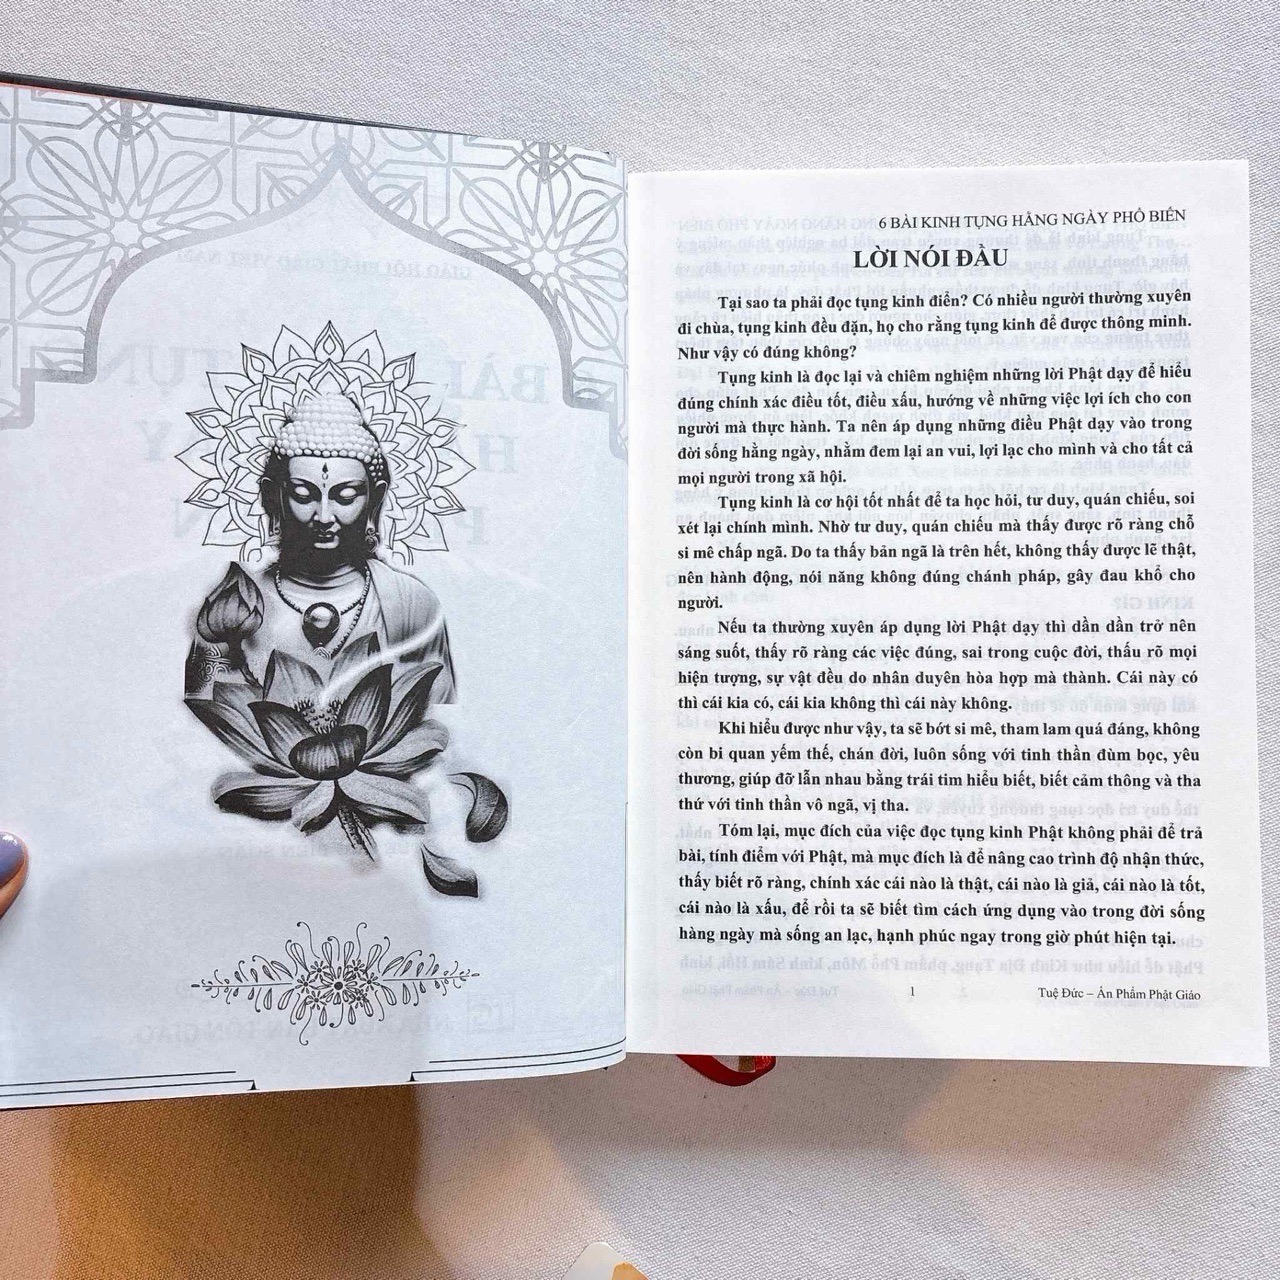 6 BÀI KINH TỤNG HẰNG NGÀY PHỔ BIẾN
LỜI NÓI ĐẦU
Tại sao ta phải đọc tụng kinh điển? Có nhiều người thường xuyên
đi chùa, tụng kinh đều đặn, họ cho rằng tụng kinh để được thông minh.
Như vậy có đúng không?
Tụng kinh là đọc lại và chiêm nghiệm những lời Phật dạy để hiểu
đúng chính xác điều tốt, điều xấu, hướng về những việc lợi ích cho con
người mà thực hành. Ta nên áp dụng những điều Phật dạy vào trong
đời sống hằng ngày, nhằm đem lại an vui, lợi lạc cho mình và cho tất cả
mọi người trong xã hội.
Tụng kinh là cơ hội tốt nhất để ta học hỏi, tư duy, quán chiếu, soi
xét lại chính mình. Nhờ tư duy, quán chiếu mà thấy được rõ ràng chỗ
si mê chấp ngã. Do ta thấy bản ngã là trên hết, không thấy được lẽ thật,
nên hành động, nói năng không đúng chánh pháp, gây đau khổ cho
người.
Nếu ta thường xuyên áp dụng lời Phật dạy thì dần dần trở nên
sáng suốt, thấy rõ ràng các việc đúng, sai trong cuộc đời, thấu rõ mọi
hiện tượng, sự vật đều do nhân duyên hòa hợp mà thành. Cái này có
thì cái kia có, cái kia không thì cái này không.
Khi hiểu được như vậy, ta sẽ bớt si mê, tham lam quá đáng, không
còn bi quan yếm thế, chán đời, luôn sống với tinh thần đùm bọc, yêu
thương, giúp đỡ lẫn nhau bằng trái tim hiểu biết, biết cảm thông và tha
thứ với tinh thần vô ngã, vị tha.
Tóm lại, mục đích của việc đọc tụng kinh Phật không phải để trả
bài, tính điểm với Phật, mà mục đích là để nâng cao trình độ nhận thức,
thấy biết rõ ràng, chính xác cái nào là thật, cái nào là giả, cái nào là tốt,
cái nào là xấu, để rồi ta sẽ biết tìm cách ứng dụng vào trong đời sống
hàng ngày mà sống an lạc, hạnh phúc ngay trong giờ phút hiện tại.
1 Tuệ Đức – Ấn Phẩm Phật Giáo